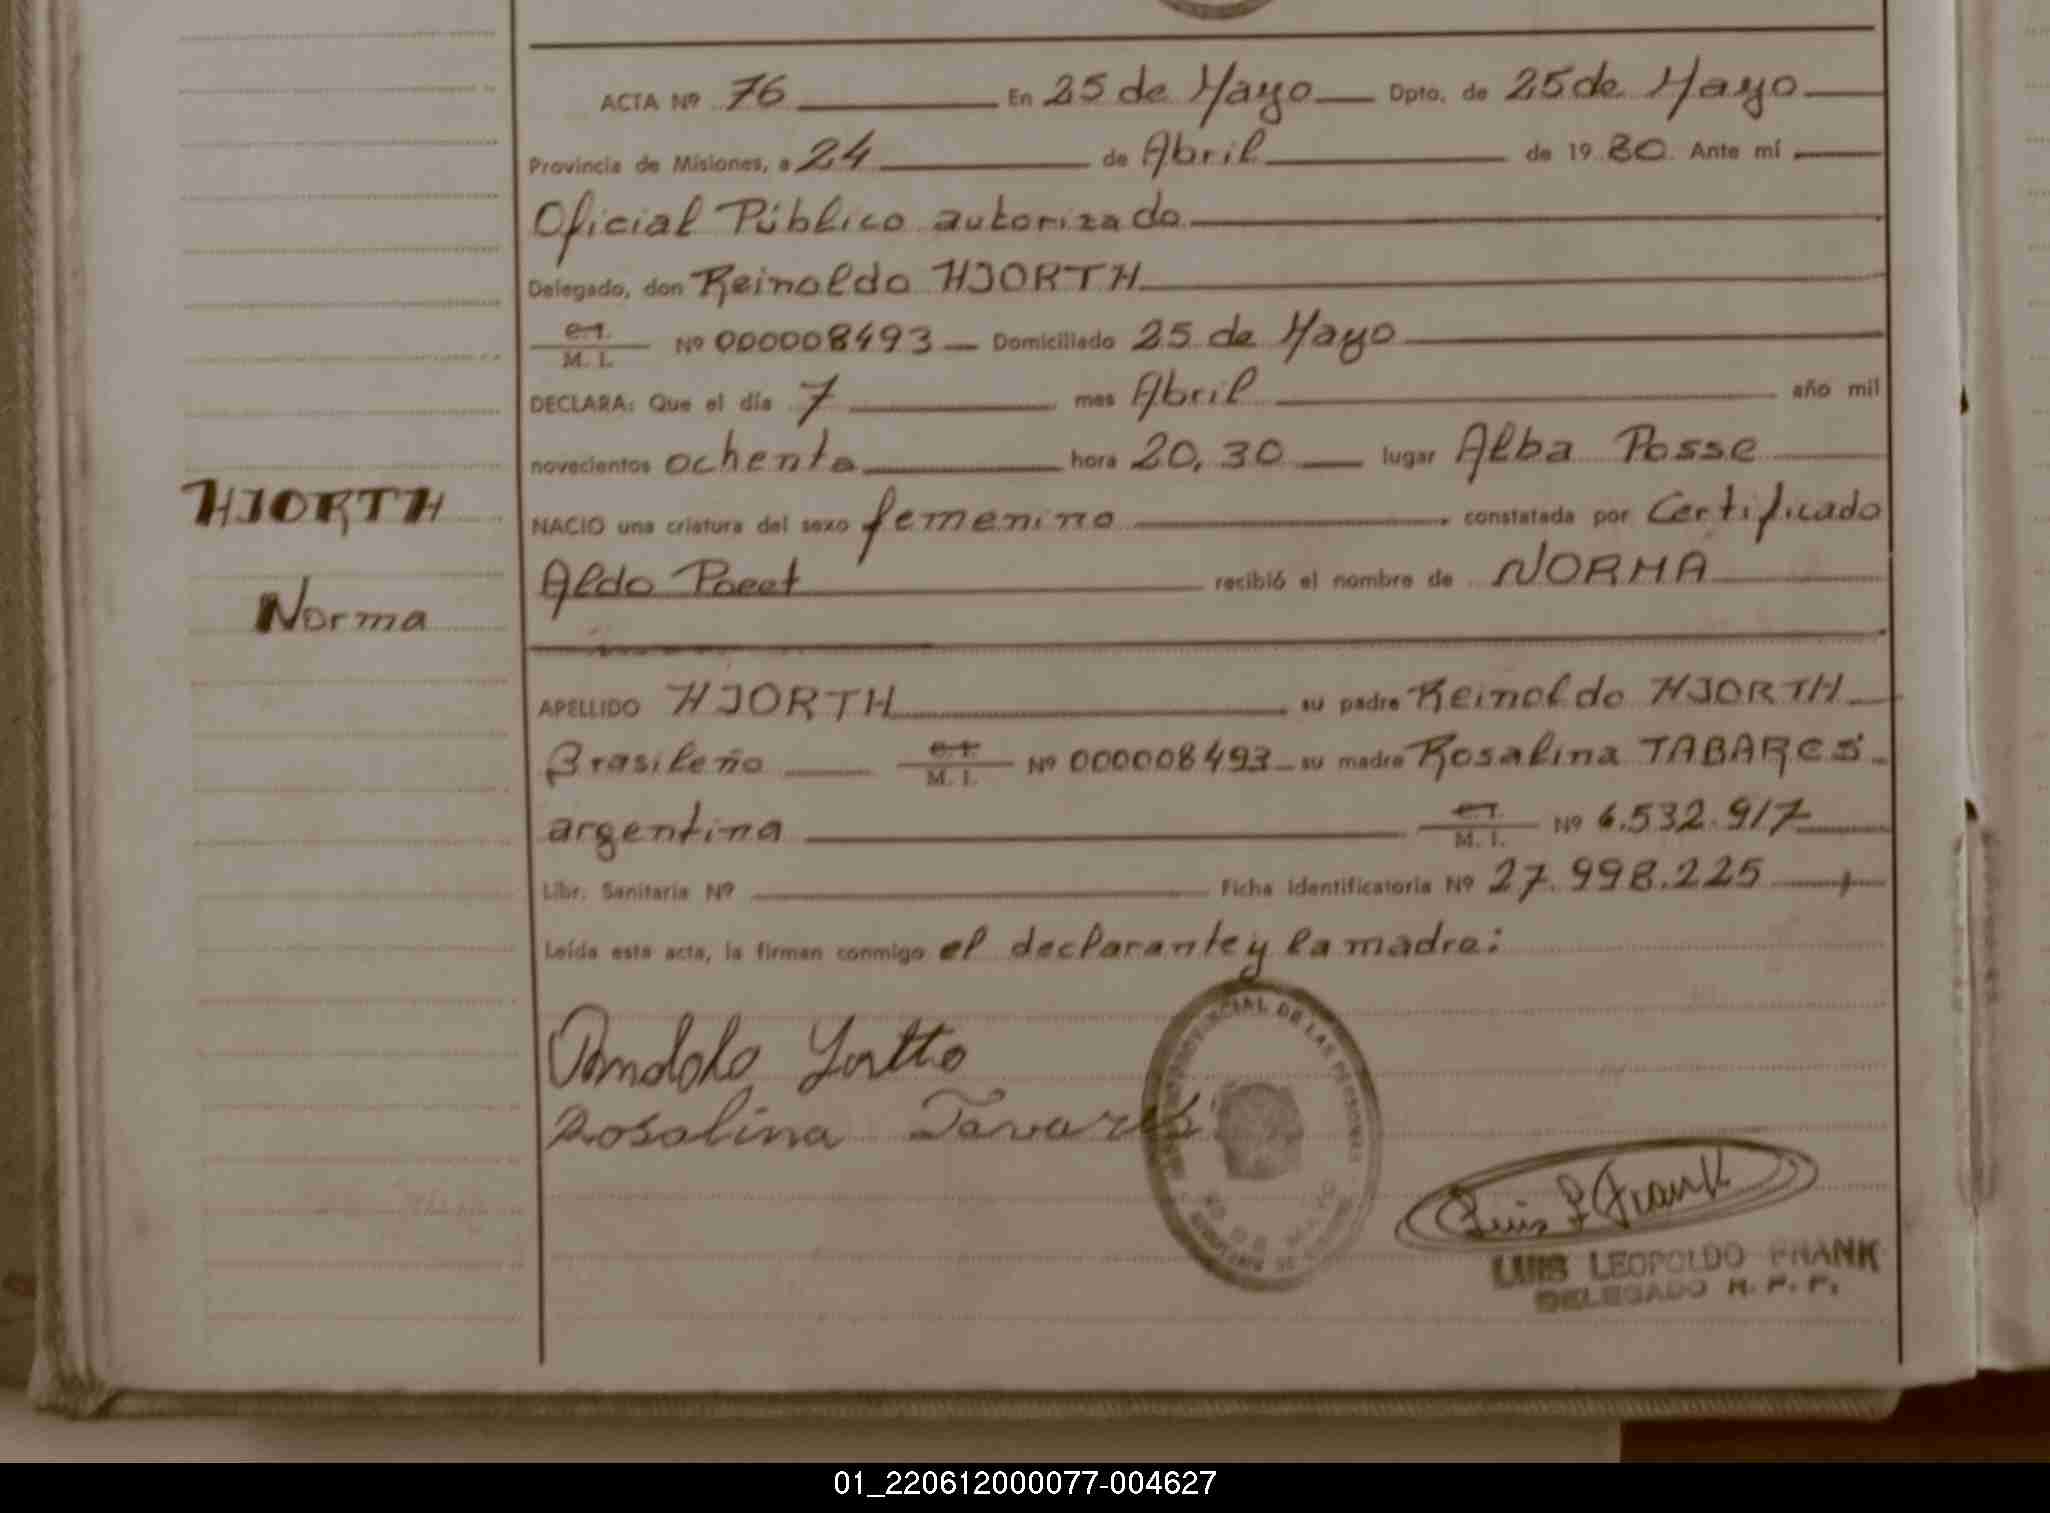 ACTA Nº 76 En 25 de Mayo Dpto. de 25 de Mayo
Provincia de Misiones, a 24 de Abril de 19 80. Ante mí
Oficial Público autorizado
Delegado, don Reinoldo HJORTH
C.I. M. I. Nº 000008493 Domiciliado 25 de Mayo
DECLARA: Que el día 7 mes Abril año mil
novecientos ochenta hora 20,30 lugar Alba Posse
NACIO una criatura del sexo femenino constatada por Certificado
Aldo Poeet recibió el nombre de NORMA
HJORTH
Norma
APELLIDO HJORTH su padre Reinoldo HJORTH
Brasileño C.I. M. I. Nº 000008493 su madre Rosalina TABARES
argentina C.I. M. I. Nº 6.532.917
Libr. Sanitaria Nº Ficha identificatoria Nº 27.998.225
Leída esta acta, la firman conmigo el declarante y la madre:
Rosalina Tavares
PROVINCIAL DE LAS PERSONAS
25 DE MAYO
Luis L Frank
LUIS LEOPOLDO FRANK
DELEGADO R. P. P.
01_220612000077-004627